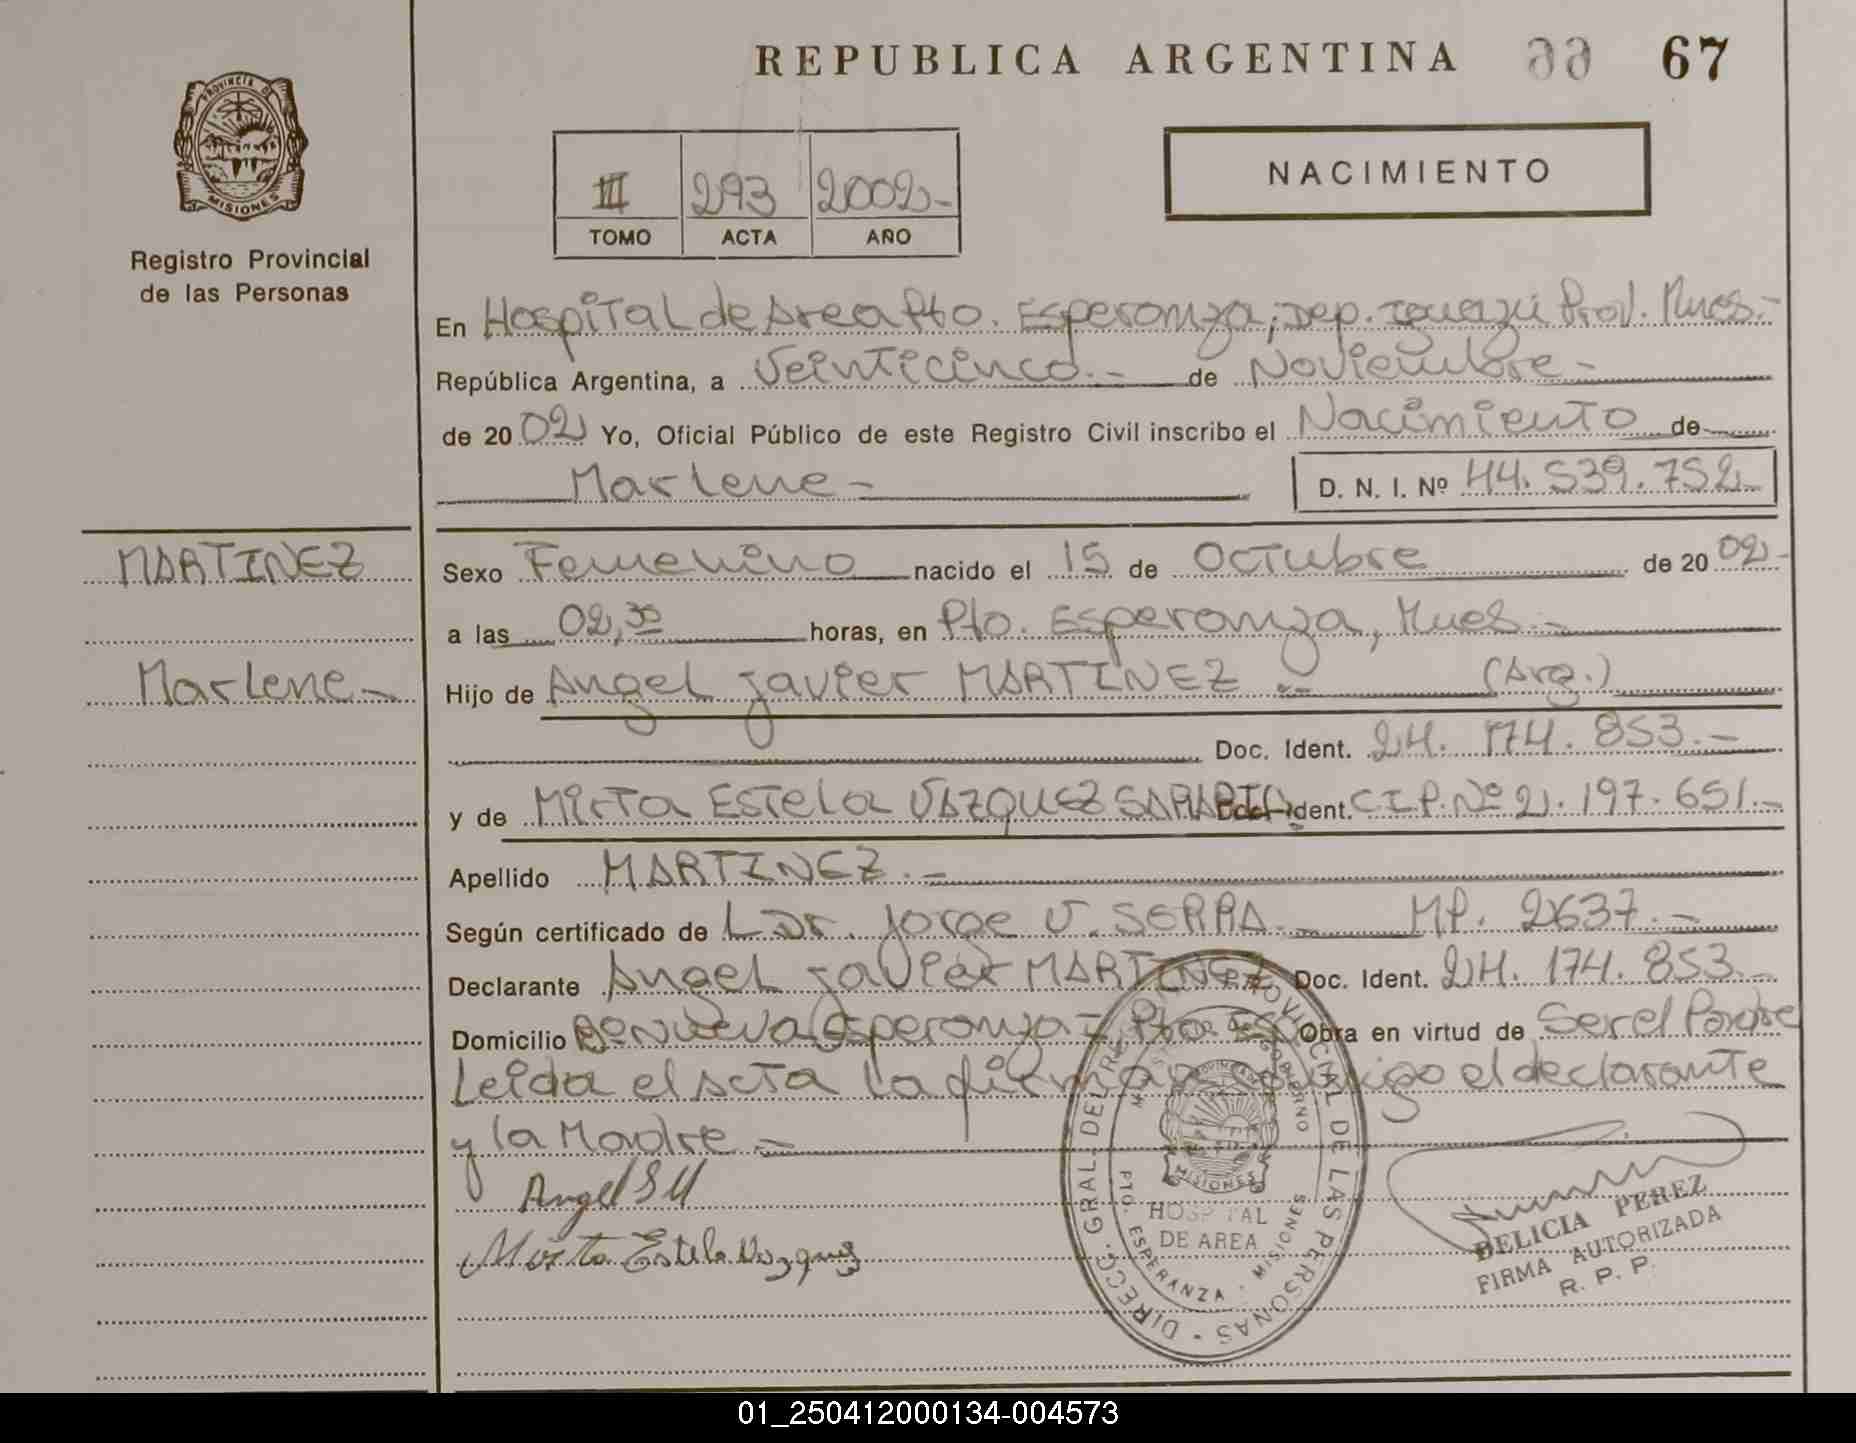 REPUBLICA ARGENTINA 67
PROVINCIA DE
MISIONES
Registro Provincial
de las Personas
III 293 2002-
TOMO ACTA AÑO
NACIMIENTO
En Hospital de Area Pto. Esperanza, Dep. Iguazú Prov. Mnes.-
República Argentina, a Veinticinco.- de Noviembre-
de 2002 Yo, Oficial Público de este Registro Civil inscribo el Nacimiento de
Marlene-
D. N. I. Nº 44.539.752-
MARTINEZ
Sexo Femenino nacido el 15 de Octubre de 2002-
a las 02,30 horas, en Pto. Esperanza, Mnes.-
Marlene-
Hijo de Angel Javier MARTINEZ.- (Arg.)
Doc. Ident. 24.174.853.-
y de Mirta Estela VAZQUEZ Doc. Ident. C.I.P. Nº 2.197.651.-
Apellido MARTINEZ.-
Según certificado de L Dr. Jorge V. SERRA.- MP. 2637.-
Declarante Angel Javier MARTINEZ Doc. Ident. 24.174.853.-
Domicilio Bo Nueva Esperanza-, Pto. Esp Obra en virtud de Ser el Padre
Leida el Acta la firman conmigo el declarante
y la Madre.-
Angel J M
Mirta Estela Vazquez
DIRECC. GRAL. DEL REG. PROVINCIAL DE LAS PERSONAS
GOBIERNO
PROVINCIA DE
MISIONES
HOSPITAL
DE AREA
PTO. ESPERANZA - MISIONES
DELICIA PEREZ
FIRMA AUTORIZADA
R. P. P.
01_250412000134-004573